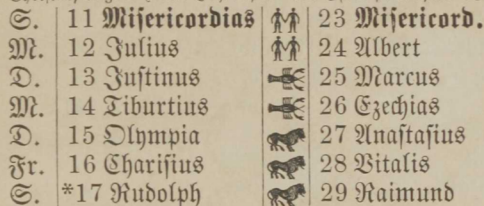 S. 11 Miſericordias 23 Miſericord.
M. 12 Julius 24 Albert
D. 13 Juſtinus 25 Marcus
M. 14 Tiburtius 26 Ezechias
D. 15 Olympia 27 Anaſtaſius
Fr. 16 Chariſius 28 Vitalis
S. *17 Rudolph 29 Raimund